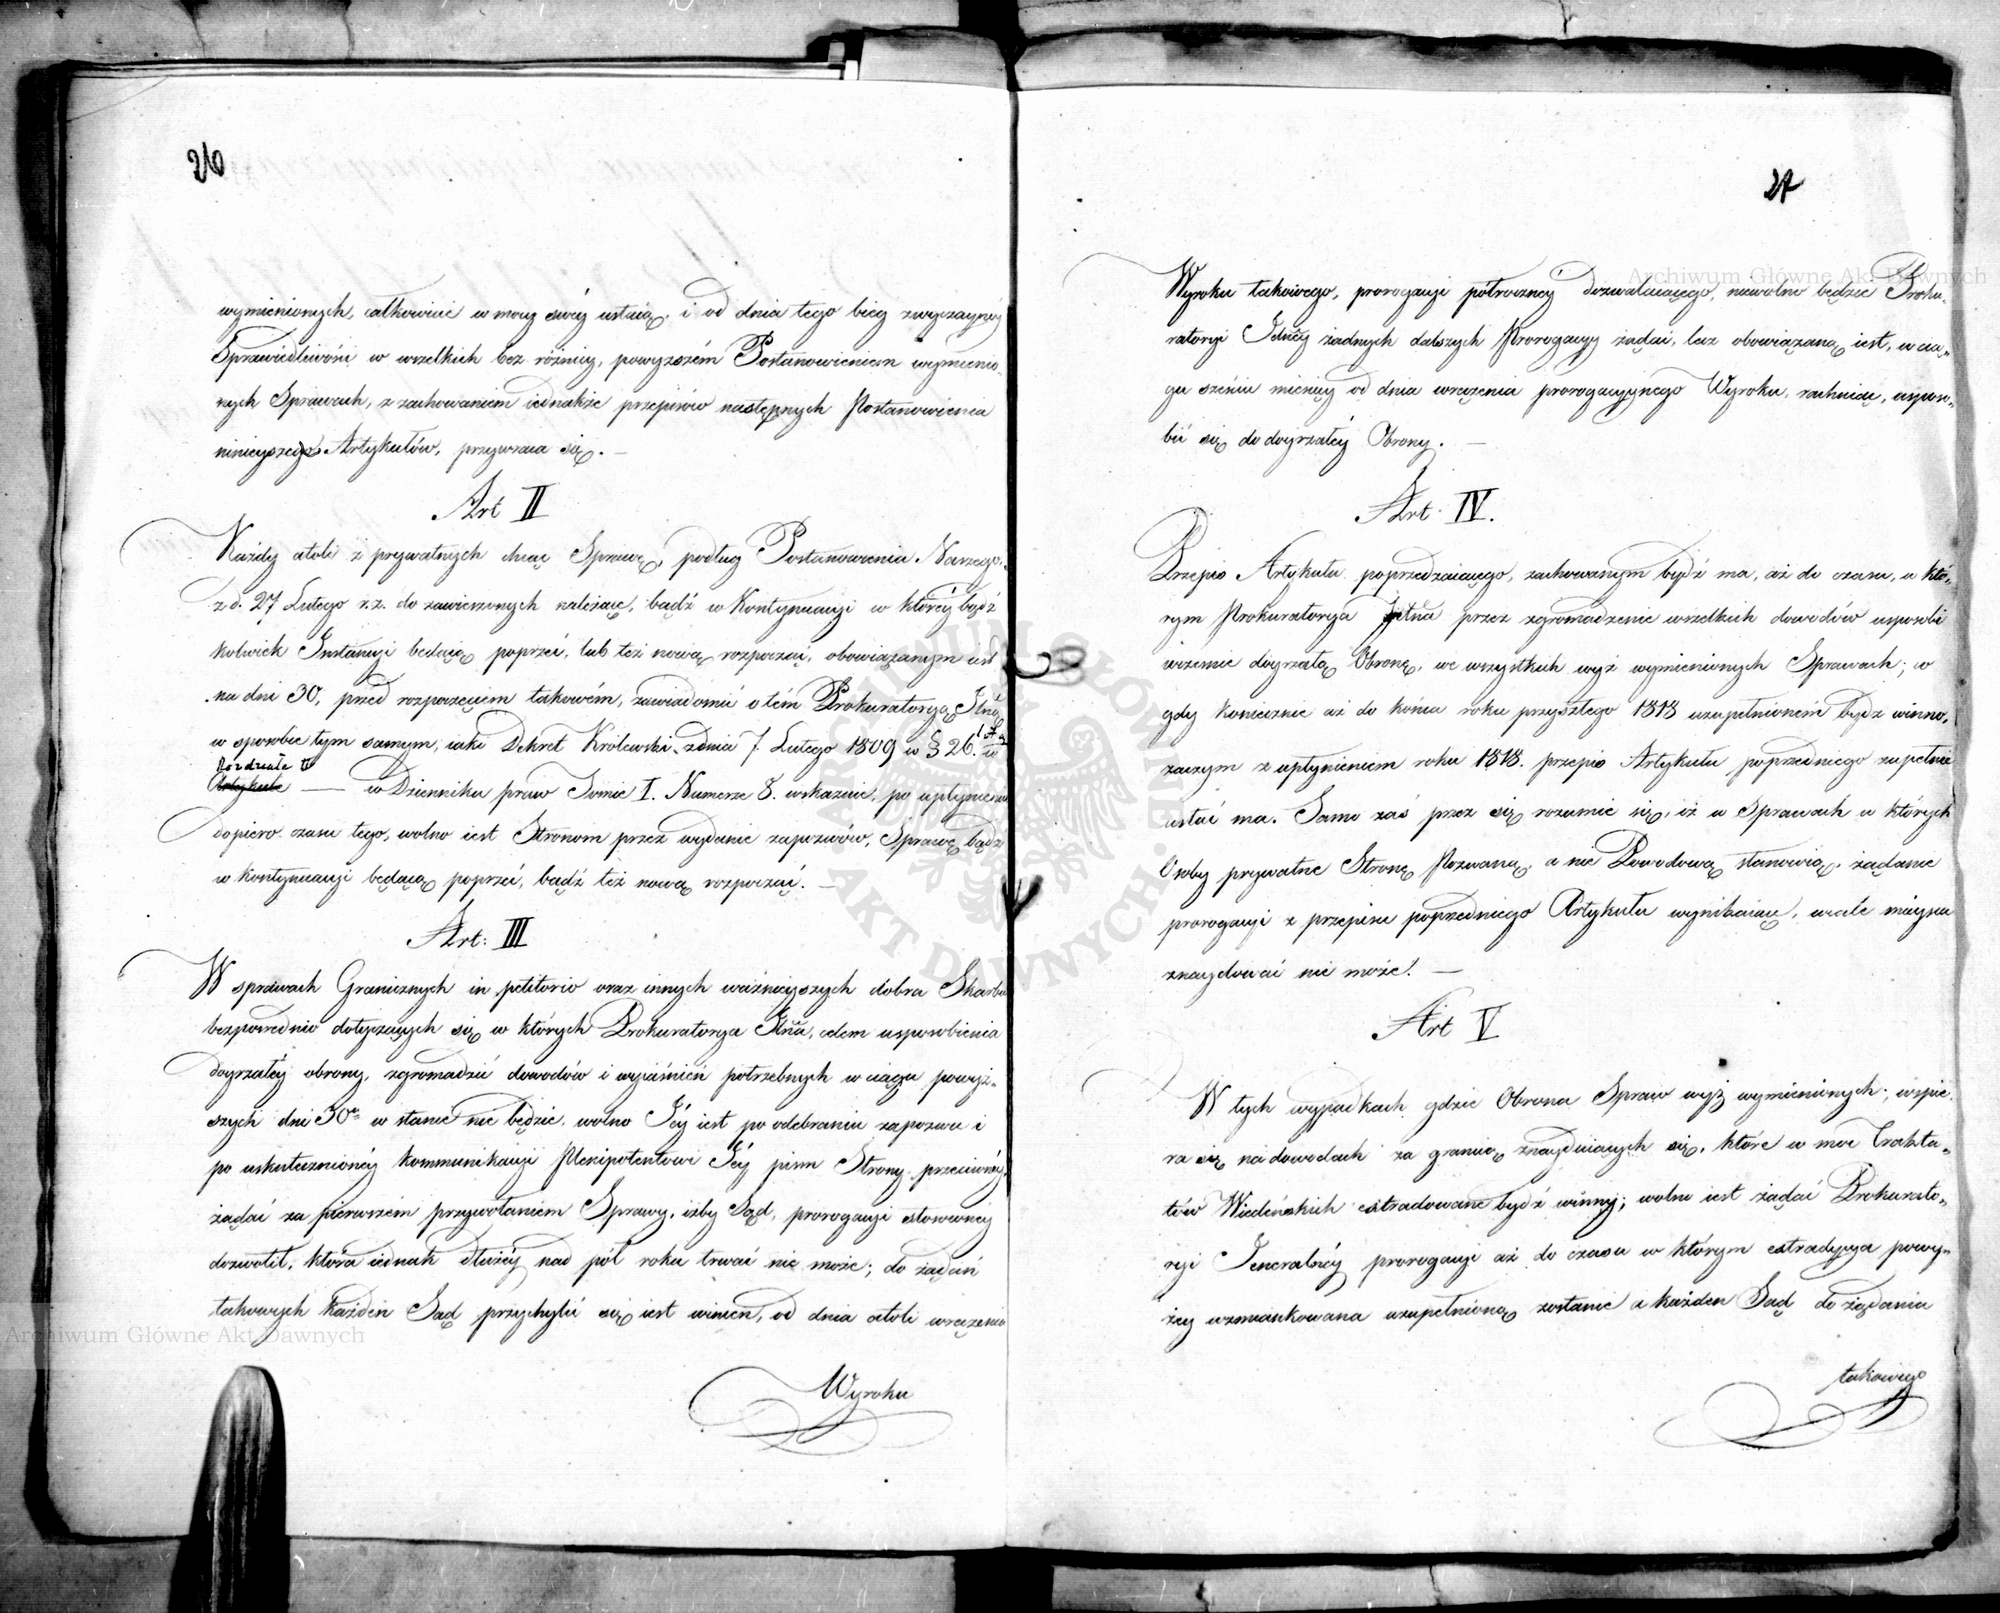 26
wymienionych, całkowicie w mocy swéy ustaią, i od dnia tego bieg zwyczayney
Sprawiedliwości w wszelkich bez różnicy, powyższém Postanowieniem wymienio-
nych Sprawach, z zachowaniem iednakże przepisów następnych Postanowienia
ninieyszego Artykułów, przywraca się. —
Art II
Każdy atoli z prywatnych chcąc Sprawę, podług Postanowienia Naszego,
z d. 27 Lutego r.z. do zawieszonych należącą, bądź w Kontynuacyi w któréy bądź
kolwiek Instancyi będącą poprzeć, lub też nową rozpocząć, obowiązanym iest
na dni 30, przed rozpoczęciem takowém, zawiadomić o tém Prokuratoryą Jlną
w sposobie tym samym, iaki Dekret Królewski z dnia 7 Lutego 1809 w § 26. w
Rozdziale II
Artykule — w Dzienniku praw Tomie I. Numerze 8. wskazuie, po upłynieniu
dopiero czasu tego, wolno iest Stronom przez wydanie zapozwów, Sprawę bądź
w kontynuacyi będącą poprzeć, bądź też nową rozpocząć. —
Art: III
W sprawach Granicznych in petitorio oraz innych ważnieyszych dobra Skarbu
bezpośrednio dotyczących się w których Prokuratorya Jlna, celem usposobienia
doyrzałéy obrony, zgromadzić dowodów i wyiaśnień potrzebnych w ciągu powyż-
szych dni 30 w stanie nie będzie, wolno Jéy iest po odebraniu zapozwu i
po uskutecznionéy kommunikacyi Plenipotentowi Jéy pism Strony przeciwnéy,
żądać za pierwszém przywołaniem Sprawy, iżby Sąd, prorogacyi stosownéy
dozwolił, która iednak dłużéy nad pół roku trwać nie może; do żądań
takowych każden Sąd przychylić się iest winien, od dnia atoli wręczenia
Wyroku
27
Wyroku takowego, prorogacyi półroczney dozwalaiącego, niewolno będzie Proku-
ratoryi Jelnéy żadnych dalszych Prorogacyy żądać, lecz obowiązaną iest, w cią-
gu sześciu miesięcy od dnia wręczenia prorogacyynego Wyroku, rachuiąc, usposo-
bić się do doyrzałéy Obrony. —
Art. IV.
Przepis Artykułu poprzedzaiącego, zachowanym bydź ma, aż do czasu, w któ-
rym Prokuratorya Jelna przez zgromadzenie wszelkich dowodów usposobi
wzaiemie doyrzałą Obronę, we wszystkich wyż wymienionych Sprawach; co
gdy koniecznie aż do końca roku przyszłego 1818 uzupełnioném bydź winno,
zaczym z upłynieniem roku 1818. przepis Artykułu poprzedniego zupełnie
ustać ma. Samo zaś przez się rozumie się, iż w Sprawach w których
Osoby prywatne Stronę Pozwaną, a nie Powodową stanowią, żądanie
prorogacyi z przepisu poprzedniego Artykułu wynikaiące, wcale mieysca
znaydować nie może. —
Art V
W tych wypadkach gdzie Obrona Spraw wyż wymienionych, wspie-
ra się na dowodach za granicą znayduiących się, które w moc Trakta-
tów Wiedeńskich extradowane bydź winny; wolno iest żądać Prokurato-
ryi Jeneralnéy prorogacyi aż do czasu w którym extradycya powy-
żéy wzmiankowana uzupełnioną zostanie a każden Sąd do żądania
takowego